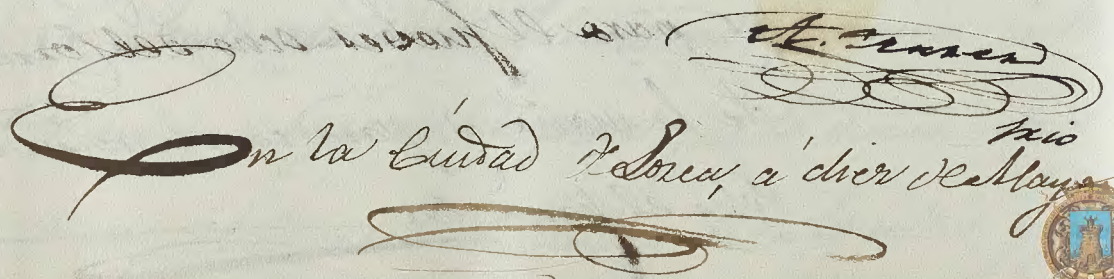 srio
En la Ciudad de Lorca, á diez de Mayo